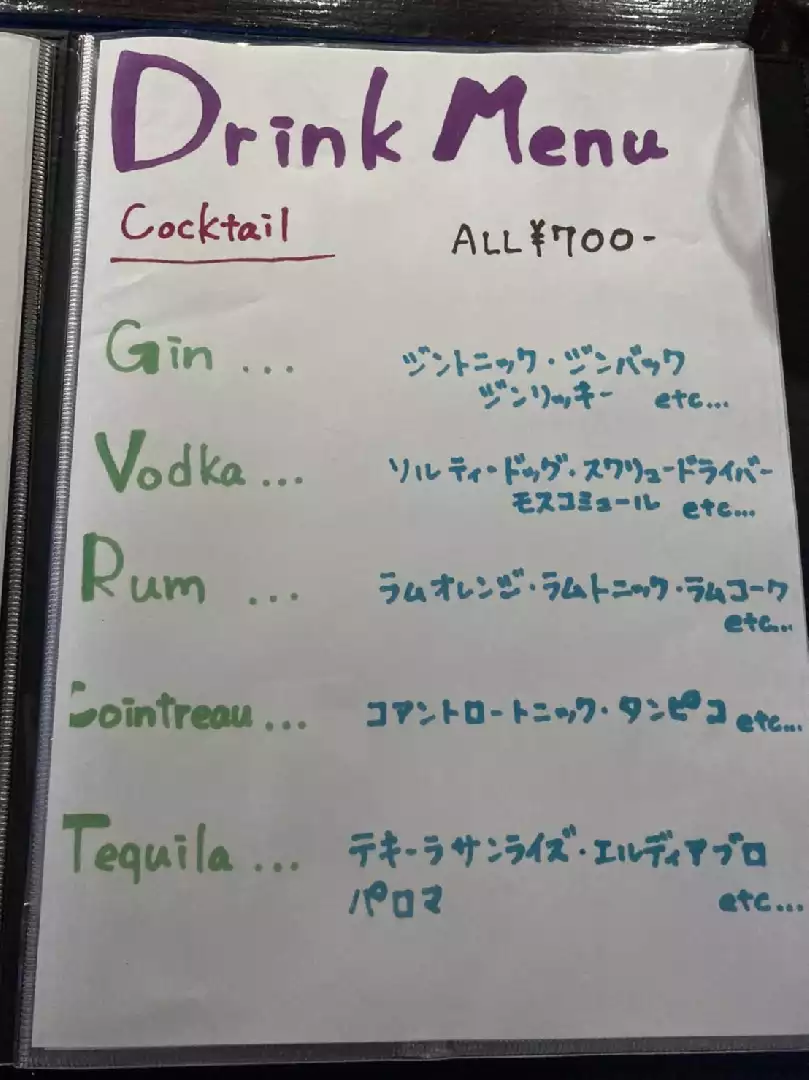 Drink Menu
Cocktail ALL ¥700-
Gin ... ジントニック・ジンバック
ジンリッキー etc...
Vodka ... ソルティードッグ・スクリュードライバー
モスコミュール etc...
Rum ... ラムオレンジ・ラムトニック・ラムコーク
etc...
Cointreau ... コアントロートニック・タンピコ etc...
Tequila ... テキーラサンライズ・エルディアブロ
パロマ etc...